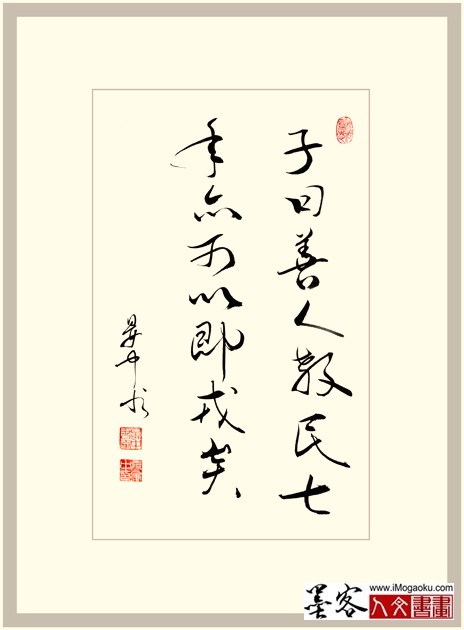 子曰善人教民七
年亦可以即戎矣
墨客
www.iMogaoku.com
人文書畫